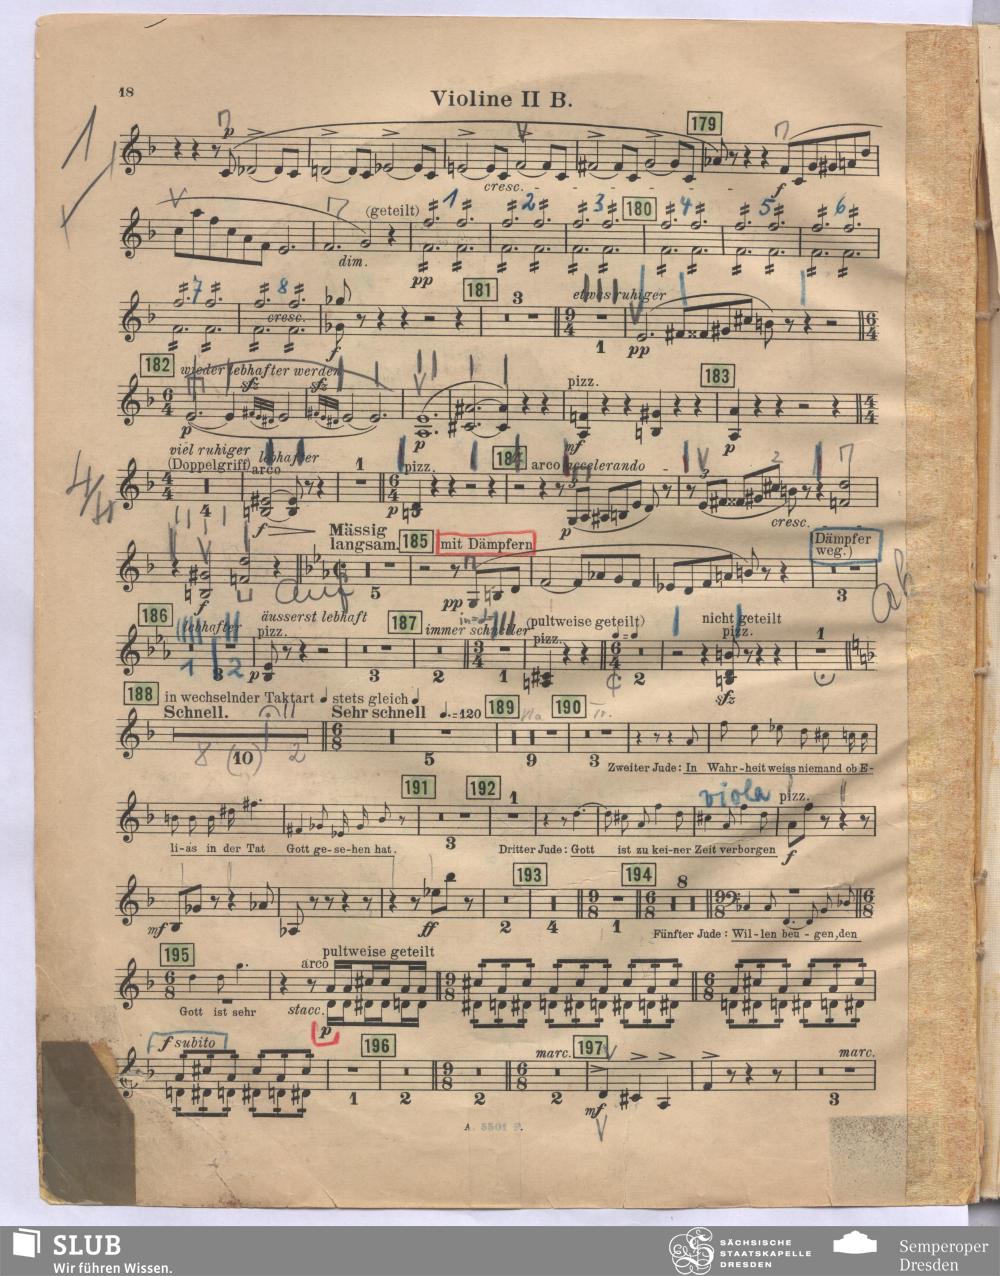 18
Violine II B.
1
p
179
cresc.
f
(geteilt) 1 2 3 180 4 5 6
dim.
pp
7 8 181 3 etwas ruhiger
cresc.
f 1 pp
182 wieder lebhafter werden
sfz sfz pizz. 183
p p mf p
viel ruhiger
(Doppelgriff) lebhafter
arco 1 pizz. 184 arco accelerando
4 f p p cresc.
Mässig
langsam. 185 mit Dämpfern
Dämpfer
weg.)
f auf 5 pp 3 ab
186 lebhafter äusserst lebhaft
pizz. 187 immer schneller (pultweise geteilt)
pizz. nicht geteilt
pizz. 1
1 3 2 p 3 2 1 2 sfz
188 in wechselnder Taktart stets gleich
Schnell. Sehr schnell =120 189 190
8 (10) 2 5 9 3
Zweiter Jude: In Wahr-heit weiss niemand ob E-
191 192 1 viola pizz.
li-as in der Tat Gott ge-se-hen hat. 3 Dritter Jude: Gott ist zu kei-ner Zeit verborgen f
193 194 8
mf ff 2 4 1
Fünfter Jude: Wil-len beu-gen, den
195 arco pultweise geteilt
Gott ist sehr stacc.
p
f subito 196 marc. 197 marc.
1 2 2 2 mf 3
A. 5501 F.
SLUB
Wir führen Wissen.
SÄCHSISCHE
STAATSKAPELLE
DRESDEN
Semperoper
Dresden